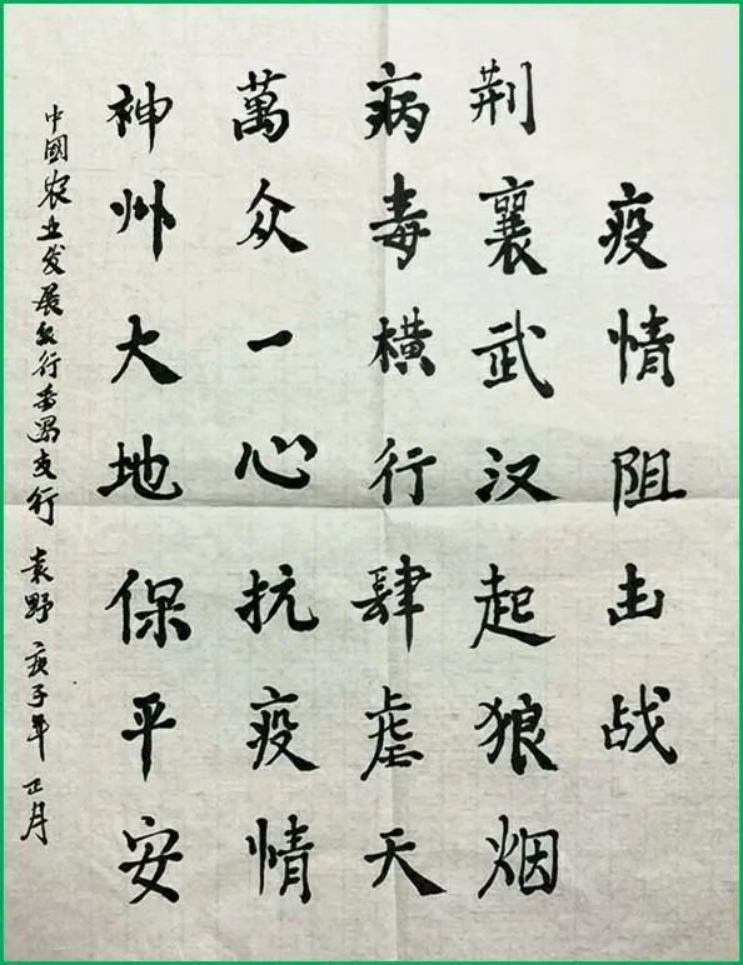 疫情阻击战
荆襄武汉起狼烟
病毒横行肆虐天
萬众一心抗疫情
神州大地保平安
中國农业发展银行番禺支行 袁野 庚子年 正月